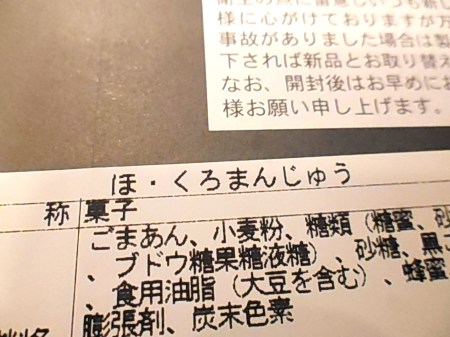 様に心がけておりますが万
事故がありました場合は製
下されば新品とお取り替え
なお、開封後はお早めにお
様お願い申し上げます。
ほ・くろまんじゅう
称 菓子
ごまあん、小麦粉、糖類(糖蜜、砂
、ブドウ糖果糖液糖)、砂糖、黒ご
、食用油脂(大豆を含む)、蜂蜜
膨張剤、炭末色素